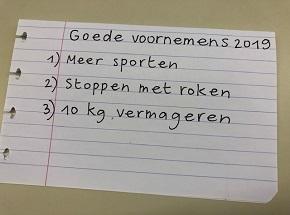 Goede voornemens 2019
1) Meer sporten
2) Stoppen met roken
3) 10 kg vermageren